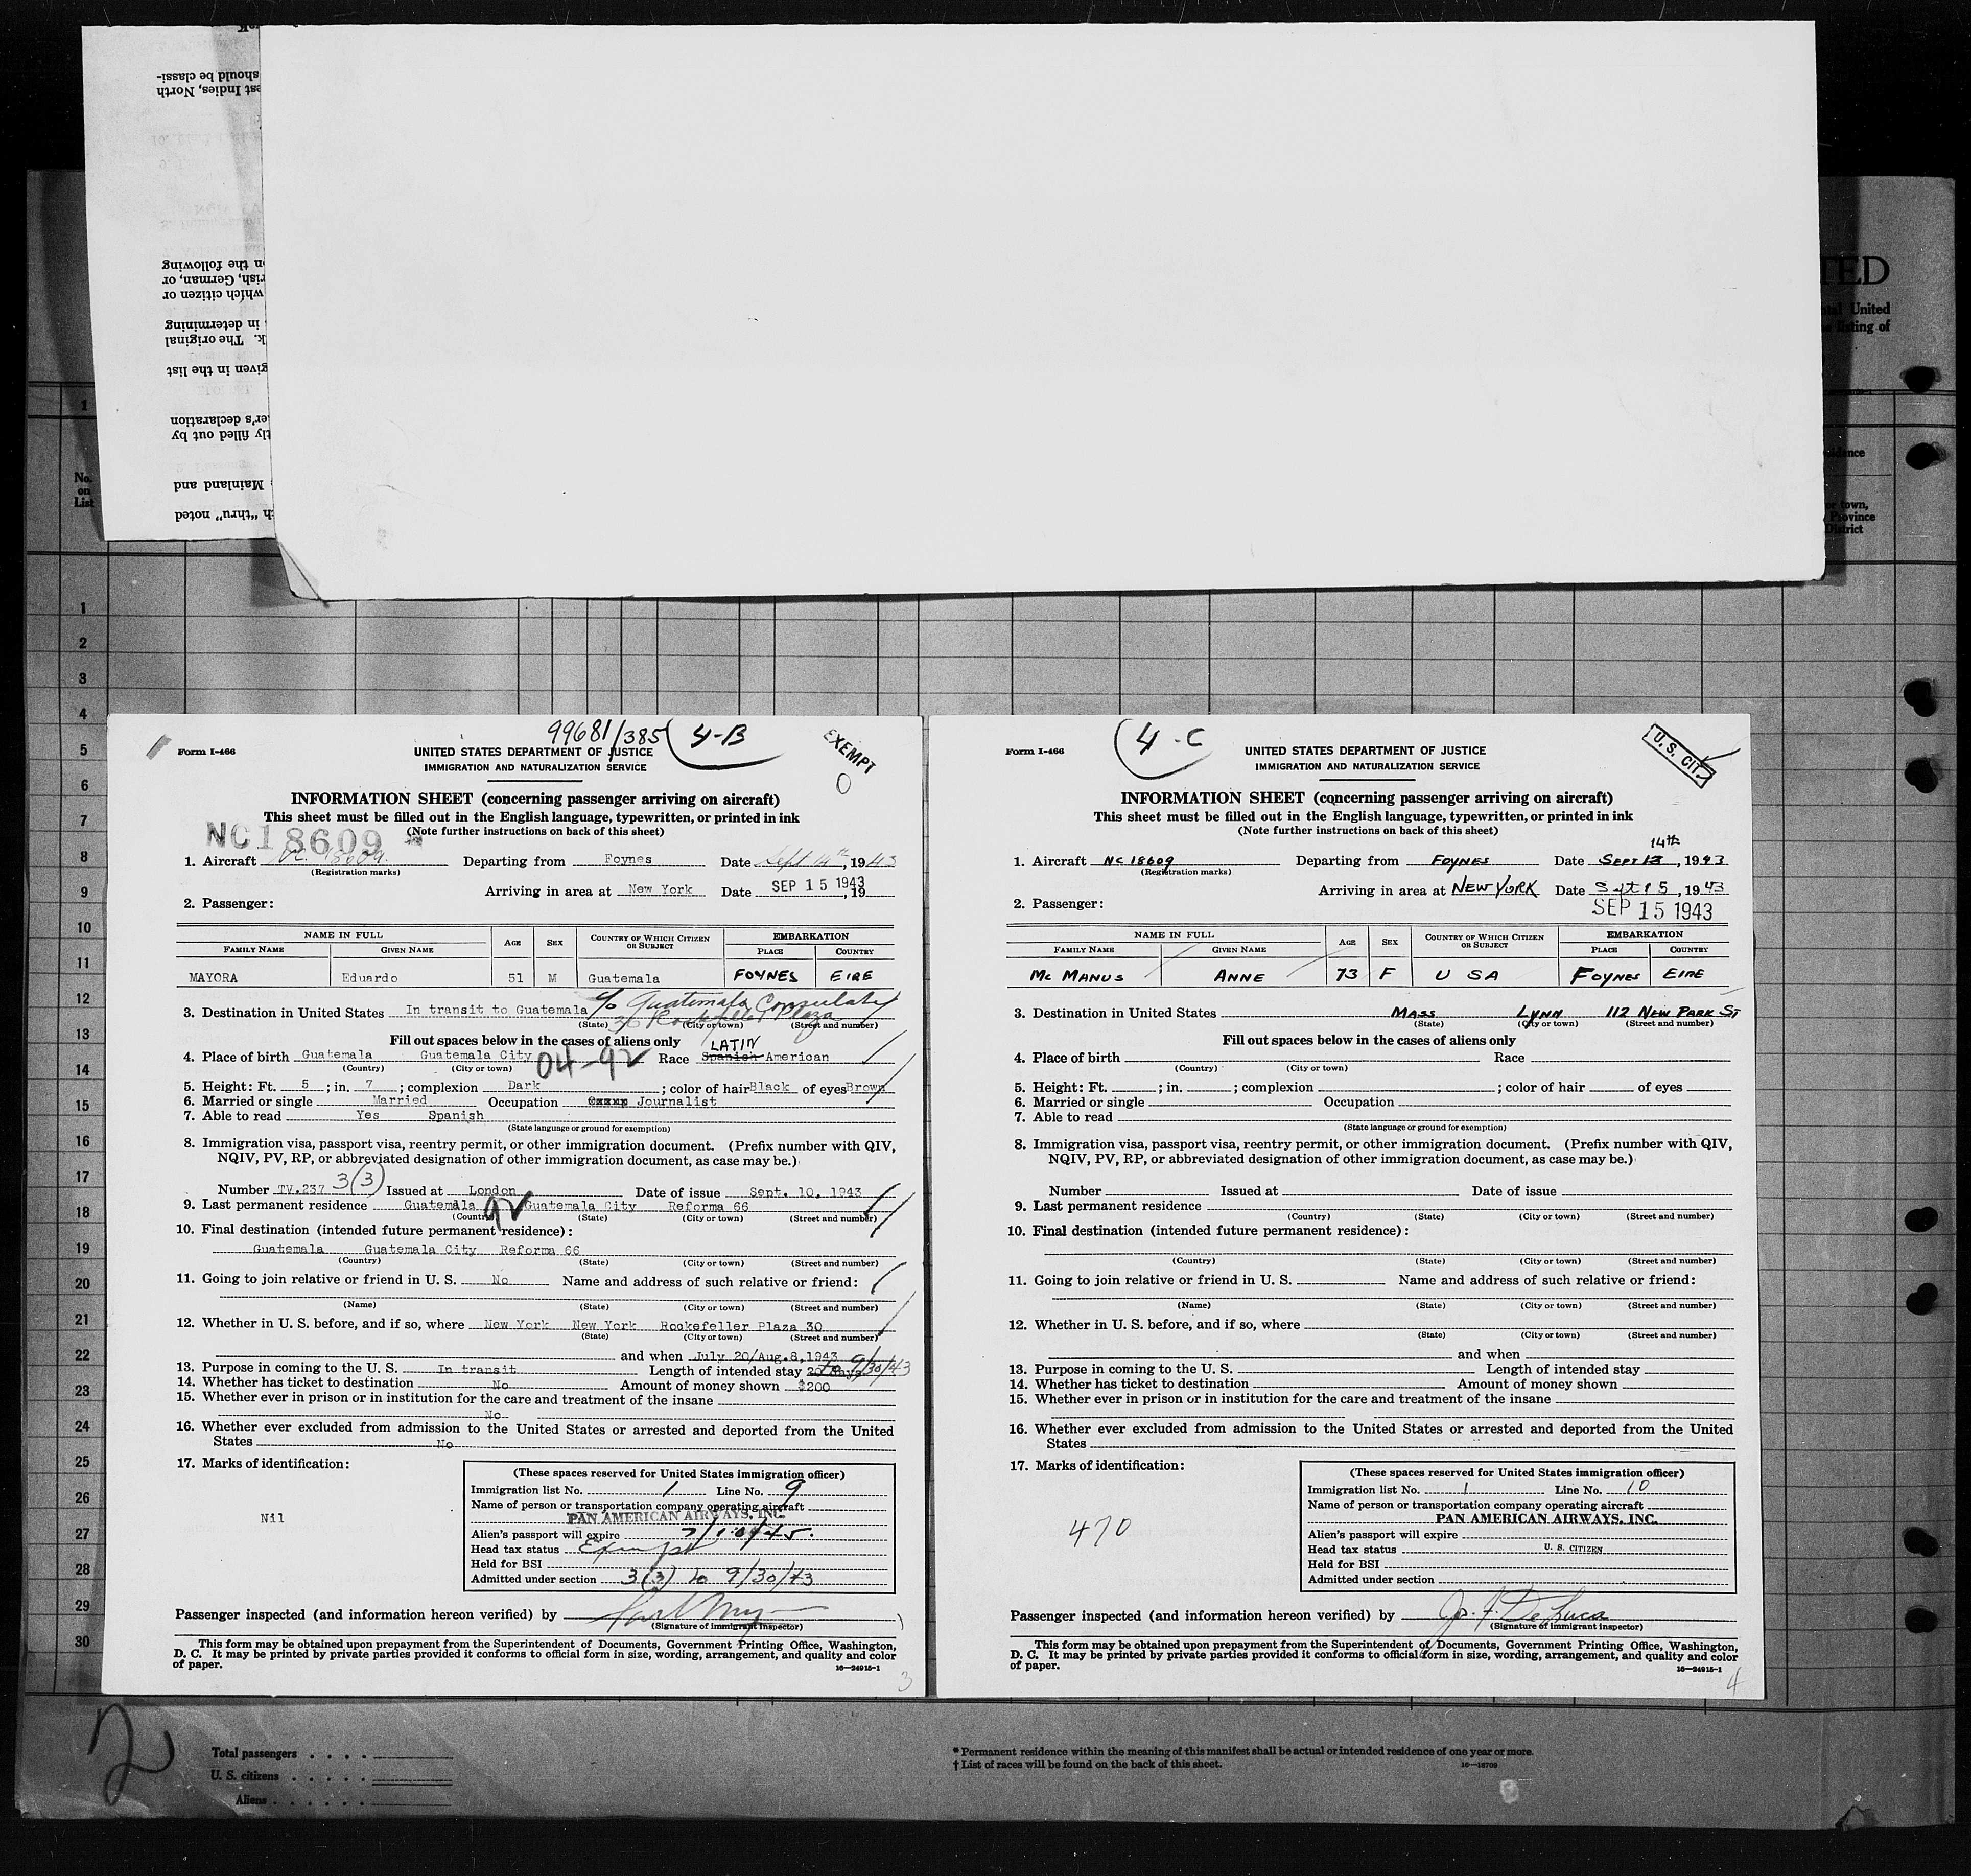 should be classi-
est Indies, North
n the following
rish, German, or
which citizen or
in determining
k. The original
given in the list
er's declaration
tly filled out by
Mainland and
ch "thru" noted
TED
ntal United
listing of
No. on List
or town,
Province
District
1
1
2
3
4
5
6
7
8
9
10
11
12
13
14
15
16
17
18
19
20
21
22
23
24
25
26
27
28
29
30
99681/385 4-B
Form I-466
EXEMPT
0
UNITED STATES DEPARTMENT OF JUSTICE
IMMIGRATION AND NATURALIZATION SERVICE
INFORMATION SHEET (concerning passenger arriving on aircraft)
This sheet must be filled out in the English language, typewritten, or printed in ink
(Note further instructions on back of this sheet)
NC18609
1. Aircraft NC 18609 Departing from Foynes Date Sept 14th, 1943
(Registration marks)
Arriving in area at New York Date SEP 15 1943, 19
2. Passenger:
NAME IN FULL AGE SEX COUNTRY OF WHICH CITIZEN OR SUBJECT EMBARKATION
FAMILY NAME GIVEN NAME PLACE COUNTRY
MAYORA Eduardo 51 M Guatemala FOYNES EIRE
3. Destination in United States In transit to Guatemala c/o Guatemala Consulate
30 Rockefeller Plaza
(State) (City or town) (Street and number)
Fill out spaces below in the cases of aliens only
LATIN
4. Place of birth Guatemala Guatemala City 04-92 Race Spanish American
(Country) (City or town)
5. Height: Ft. 5; in. 7; complexion Dark; color of hair Black of eyes Brown
6. Married or single Married Occupation Journalist
7. Able to read Yes Spanish
(State language or ground for exemption)
8. Immigration visa, passport visa, reentry permit, or other immigration document. (Prefix number with QIV,
NQIV, PV, RP, or abbreviated designation of other immigration document, as case may be.)
Number TV.237 3(3) Issued at London Date of issue Sept. 10, 1943
9. Last permanent residence Guatemala 92 Guatemala City Reforma 66
(Country) (State) (City or town) (Street and number)
10. Final destination (intended future permanent residence):
Guatemala Guatemala City Reforma 66
(Country) (State) (City or town) (Street and number)
11. Going to join relative or friend in U. S. No Name and address of such relative or friend:
(Name) (State) (City or town) (Street and number)
12. Whether in U. S. before, and if so, where New York New York Rockefeller Plaza 30
(State) (City or town) (Street and number)
and when July 20/Aug.8,1943
13. Purpose in coming to the U. S. In transit Length of intended stay 20 days to 9/30/43
14. Whether has ticket to destination No Amount of money shown $200
15. Whether ever in prison or in institution for the care and treatment of the insane
No
16. Whether ever excluded from admission to the United States or arrested and deported from the United
States No
17. Marks of identification:
Nil
(These spaces reserved for United States immigration officer)
Immigration list No. 1 Line No. 9
Name of person or transportation company operating aircraft
PAN AMERICAN AIRWAYS, INC.
Alien's passport will expire
Head tax status Exempt
Held for BSI
Admitted under section 3(3) to 9/30/43
Passenger inspected (and information hereon verified) by
(Signature of immigrant inspector)
This form may be obtained upon prepayment from the Superintendent of Documents, Government Printing Office, Washington,
D. C. It may be printed by private parties provided it conforms to official form in size, wording, arrangement, and quality and color
of paper.
16—24915-1
3
4-C
Form I-466
U. S. CIT.
UNITED STATES DEPARTMENT OF JUSTICE
IMMIGRATION AND NATURALIZATION SERVICE
INFORMATION SHEET (concerning passenger arriving on aircraft)
This sheet must be filled out in the English language, typewritten, or printed in ink
(Note further instructions on back of this sheet)
14th
1. Aircraft NC 18609 Departing from FOYNES Date SEPT 13, 1943
(Registration marks)
Arriving in area at NEW YORK Date Sept 15, 1943
SEP 15 1943
2. Passenger:
NAME IN FULL AGE SEX COUNTRY OF WHICH CITIZEN OR SUBJECT EMBARKATION
FAMILY NAME GIVEN NAME PLACE COUNTRY
Mc MANUS ANNE 73 F U S A FOYNES EIRE
3. Destination in United States MASS LYNN 112 NEW PARK ST
(State) (City or town) (Street and number)
Fill out spaces below in the cases of aliens only
4. Place of birth Race
(Country) (City or town)
5. Height: Ft. ; in. ; complexion ; color of hair of eyes
6. Married or single Occupation
7. Able to read
(State language or ground for exemption)
8. Immigration visa, passport visa, reentry permit, or other immigration document. (Prefix number with QIV,
NQIV, PV, RP, or abbreviated designation of other immigration document, as case may be.)
Number Issued at Date of issue
9. Last permanent residence
(Country) (State) (City or town) (Street and number)
10. Final destination (intended future permanent residence):
(Country) (State) (City or town) (Street and number)
11. Going to join relative or friend in U. S. Name and address of such relative or friend:
(Name) (State) (City or town) (Street and number)
12. Whether in U. S. before, and if so, where
(State) (City or town) (Street and number)
and when
13. Purpose in coming to the U. S. Length of intended stay
14. Whether has ticket to destination Amount of money shown
15. Whether ever in prison or in institution for the care and treatment of the insane
16. Whether ever excluded from admission to the United States or arrested and deported from the United
States
17. Marks of identification:
470
(These spaces reserved for United States immigration officer)
Immigration list No. 1 Line No. 10
Name of person or transportation company operating aircraft
PAN AMERICAN AIRWAYS, INC.
Alien's passport will expire
Head tax status U. S. CITIZEN
Held for BSI
Admitted under section
Passenger inspected (and information hereon verified) by Jo. F. DeLuca
(Signature of immigrant inspector)
This form may be obtained upon prepayment from the Superintendent of Documents, Government Printing Office, Washington,
D. C. It may be printed by private parties provided it conforms to official form in size, wording, arrangement, and quality and color
of paper.
16—24915-1
4
2
Total passengers . . . .
U. S. citizens . . . . .
Aliens . . . . . .
* Permanent residence within the meaning of this manifest shall be actual or intended residence of one year or more.
† List of races will be found on the back of this sheet.
16—18709